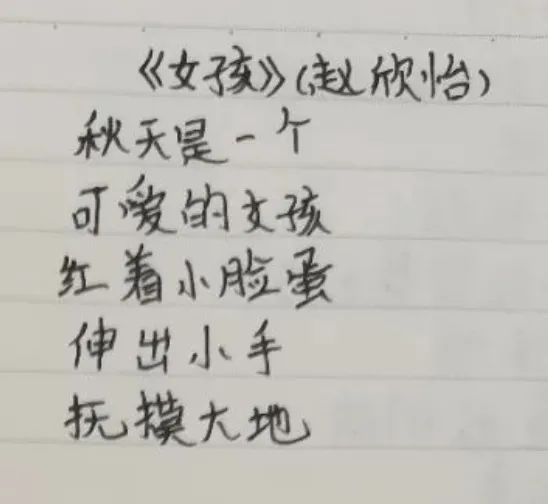 《女孩》(赵欣怡)
秋天是一个
可爱的女孩
红着小脸蛋
伸出小手
抚摸大地